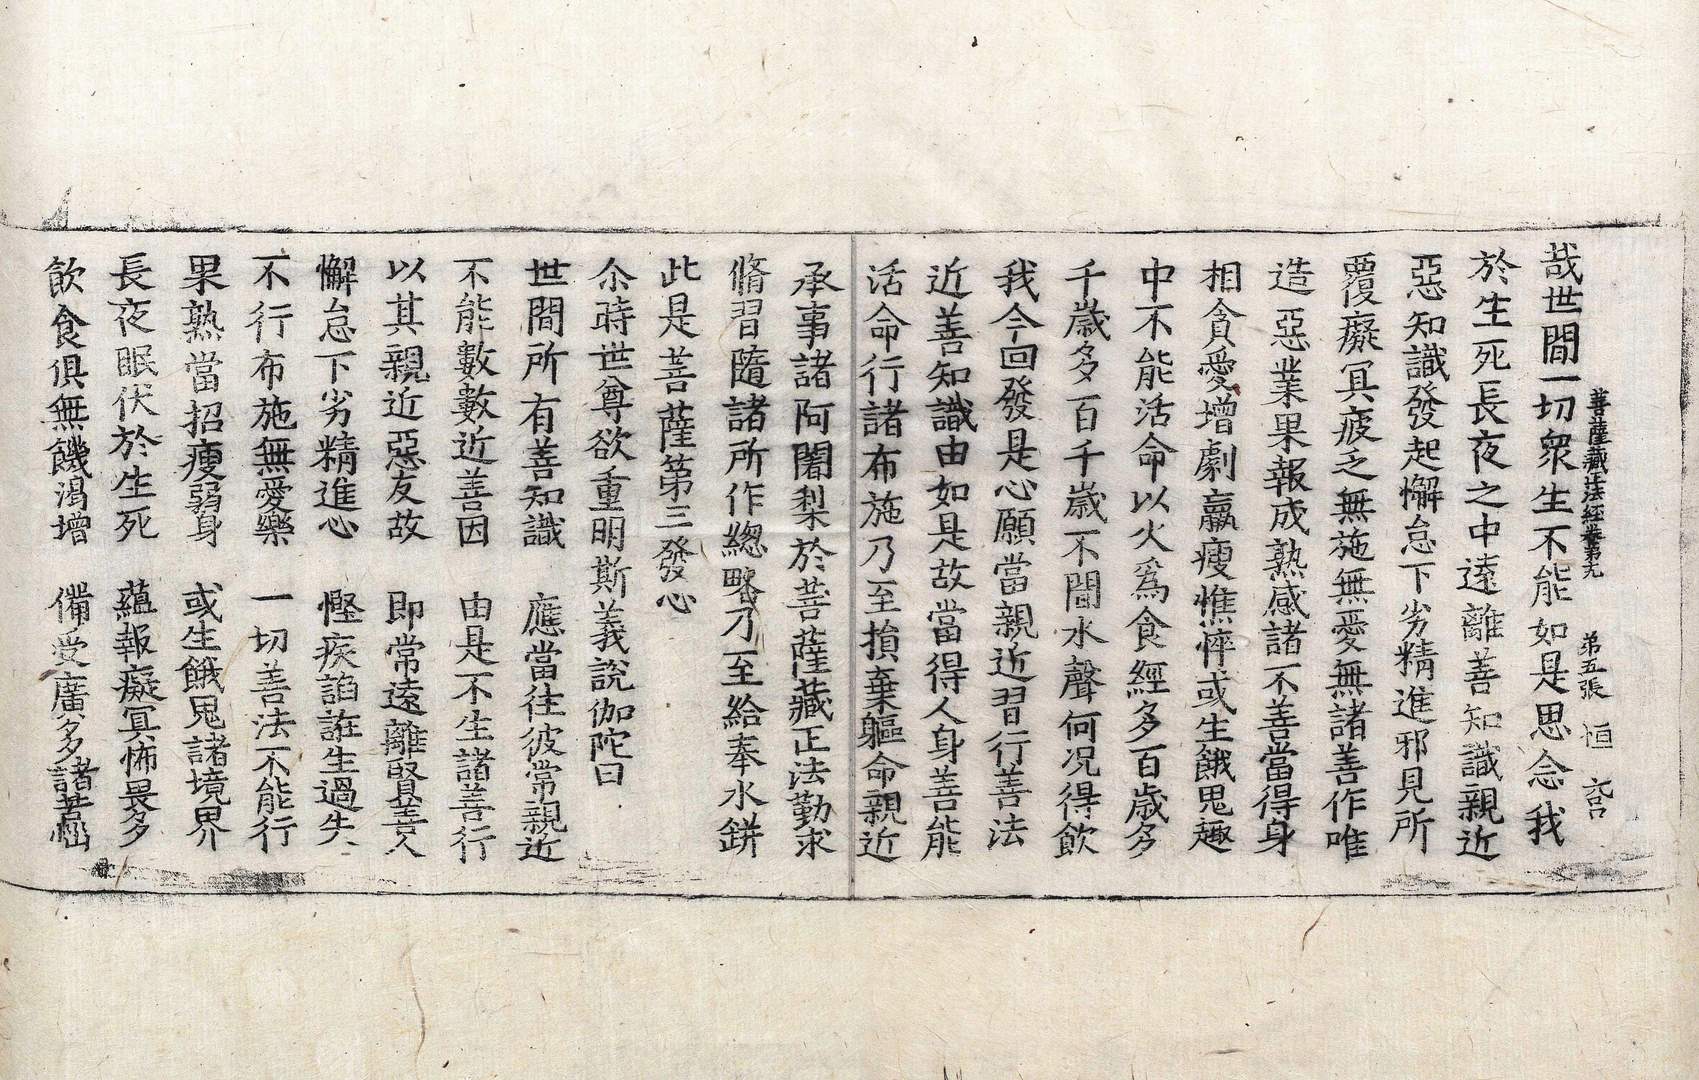 菩薩藏法經卷第九 第五張 恒 六
哉世間一切衆生不能如是思念我
於生死長夜之中遠離善知識親近
惡知識發起懈怠下劣精進邪見所
覆癡冥疲乏無施無愛無諸善作唯
造惡業果報成熟感諸不善當得身
相貪愛增劇羸瘦憔悴或生餓鬼趣
中不能活命以火爲食經多百歲多
千歲多百千歲不聞水聲何况得飲
我今回發是心願當親近習行善法
近善知識由如是故當得人身善能
活命行諸布施乃至損棄軀命親近
承事諸阿闍梨於菩薩藏正法勤求
脩習隨諸所作緫略乃至給奉水缾
此是菩薩第三發心
尒時世尊欲重明斯義說伽陀曰
世間所有善知識 應當往彼常親近
不能數數近善因 由是不生諸善行
以其親近惡友故 即常遠離賢善人
懈怠下劣精進心 慳疾諂誑生過失
不行布施無愛樂 一切善法不能行
果熟當招瘦弱身 或生餓鬼諸境界
長夜眠伏於生死 蘊報癡冥怖畏多
飲食俱無饑渴增 備受廣多諸苦惱